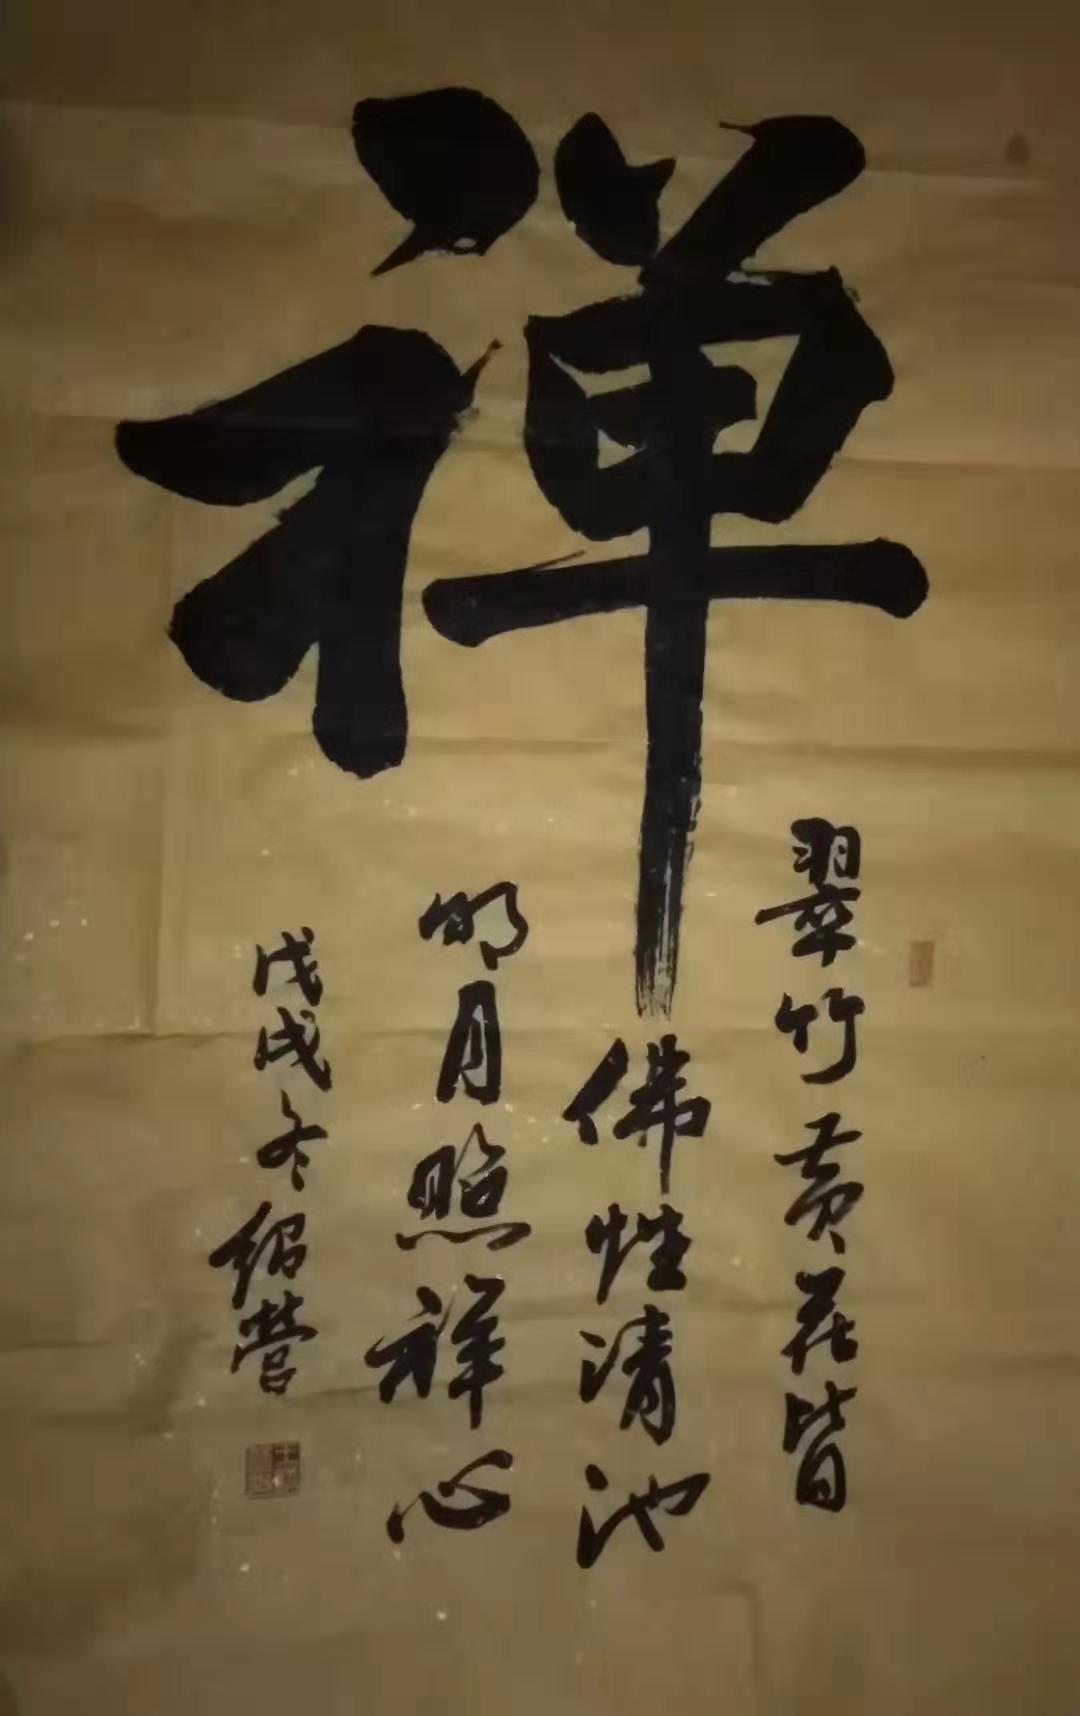 禅
翠竹黄花皆
佛性清池
明月照禅心
戊戌冬绍营